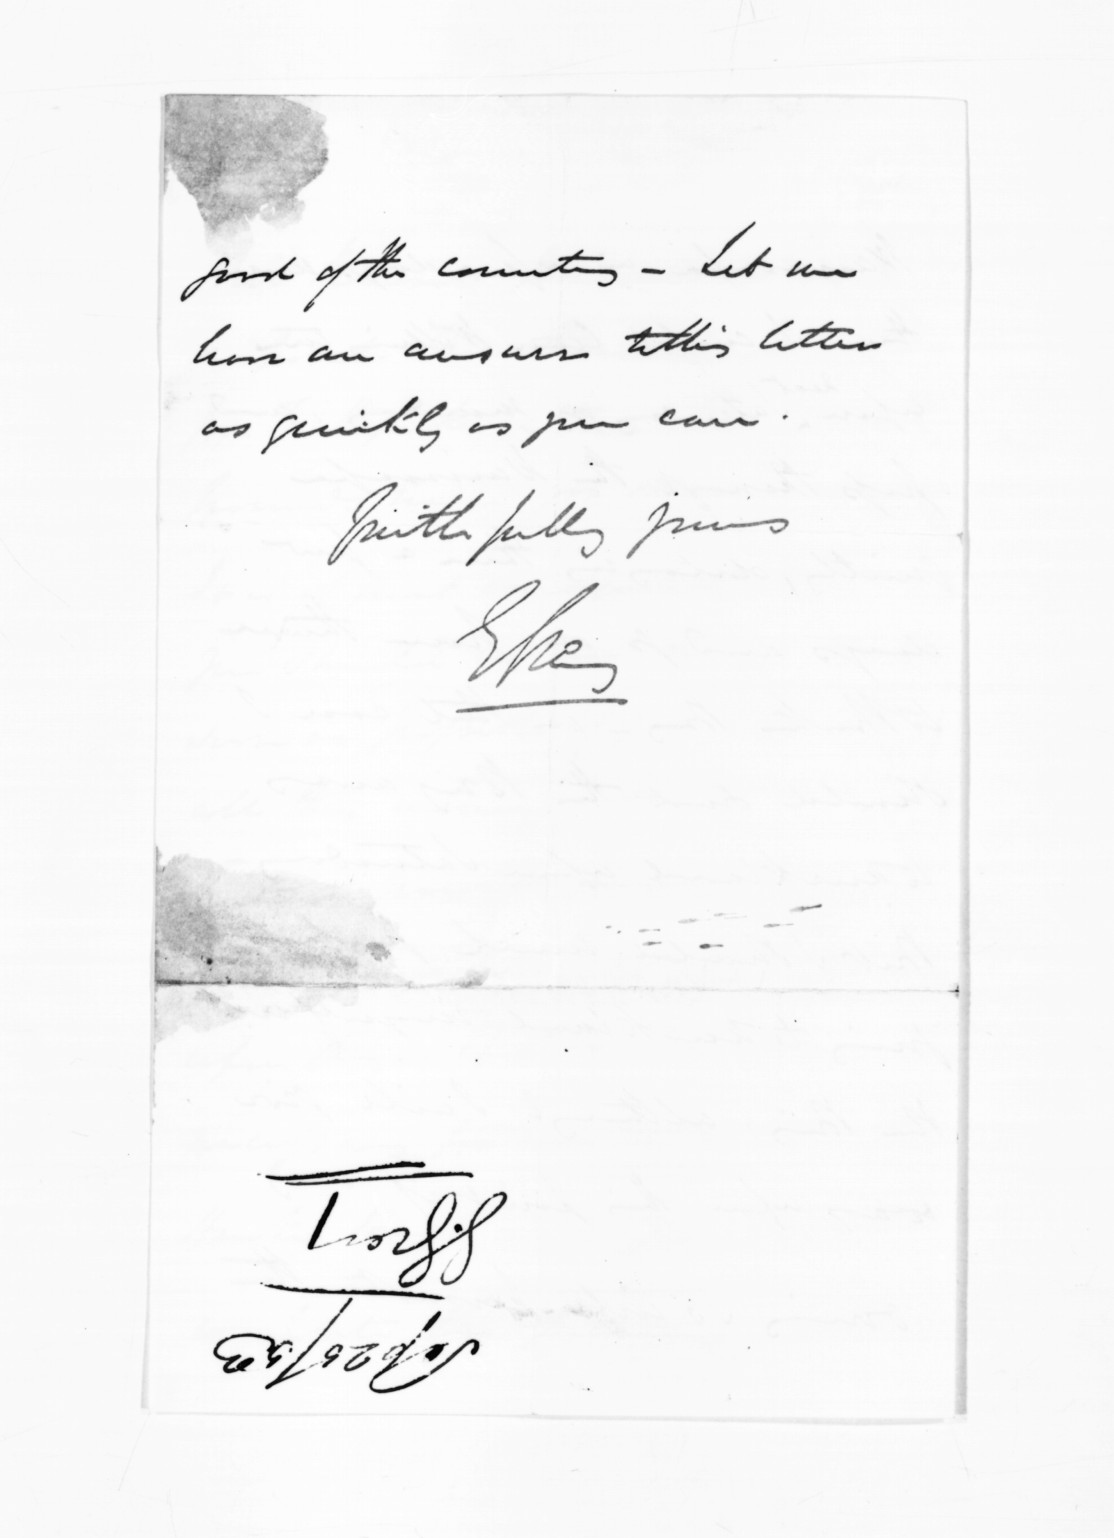 good of the country – Let me
have an answer to this letter
as quickly as you can.
Faithfully yours
G Grey
G. Grey
Sep 25/53